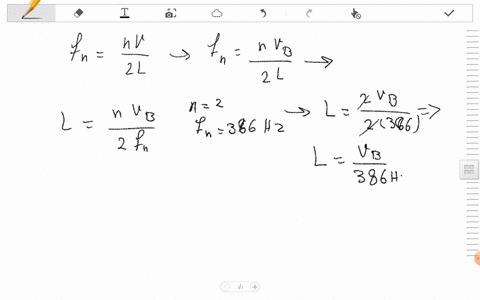 fn = nV / 2L → fn = n VB / 2 L →
L = n VB / 2 fn n = 2 fn = 386 Hz → L = 2 VB / 2 (386) ⇒
L = VB / 386 H